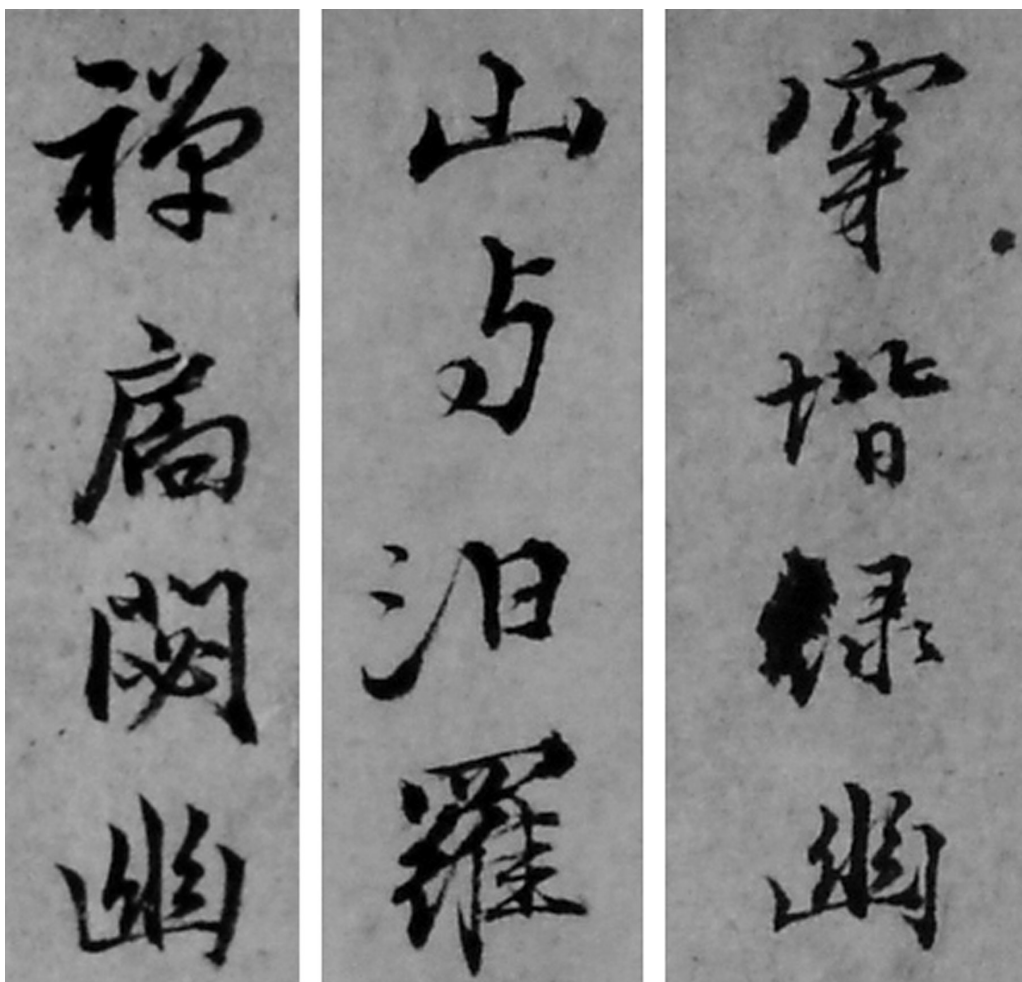 穿堦緑幽
山与汨羅
禅扃閟幽